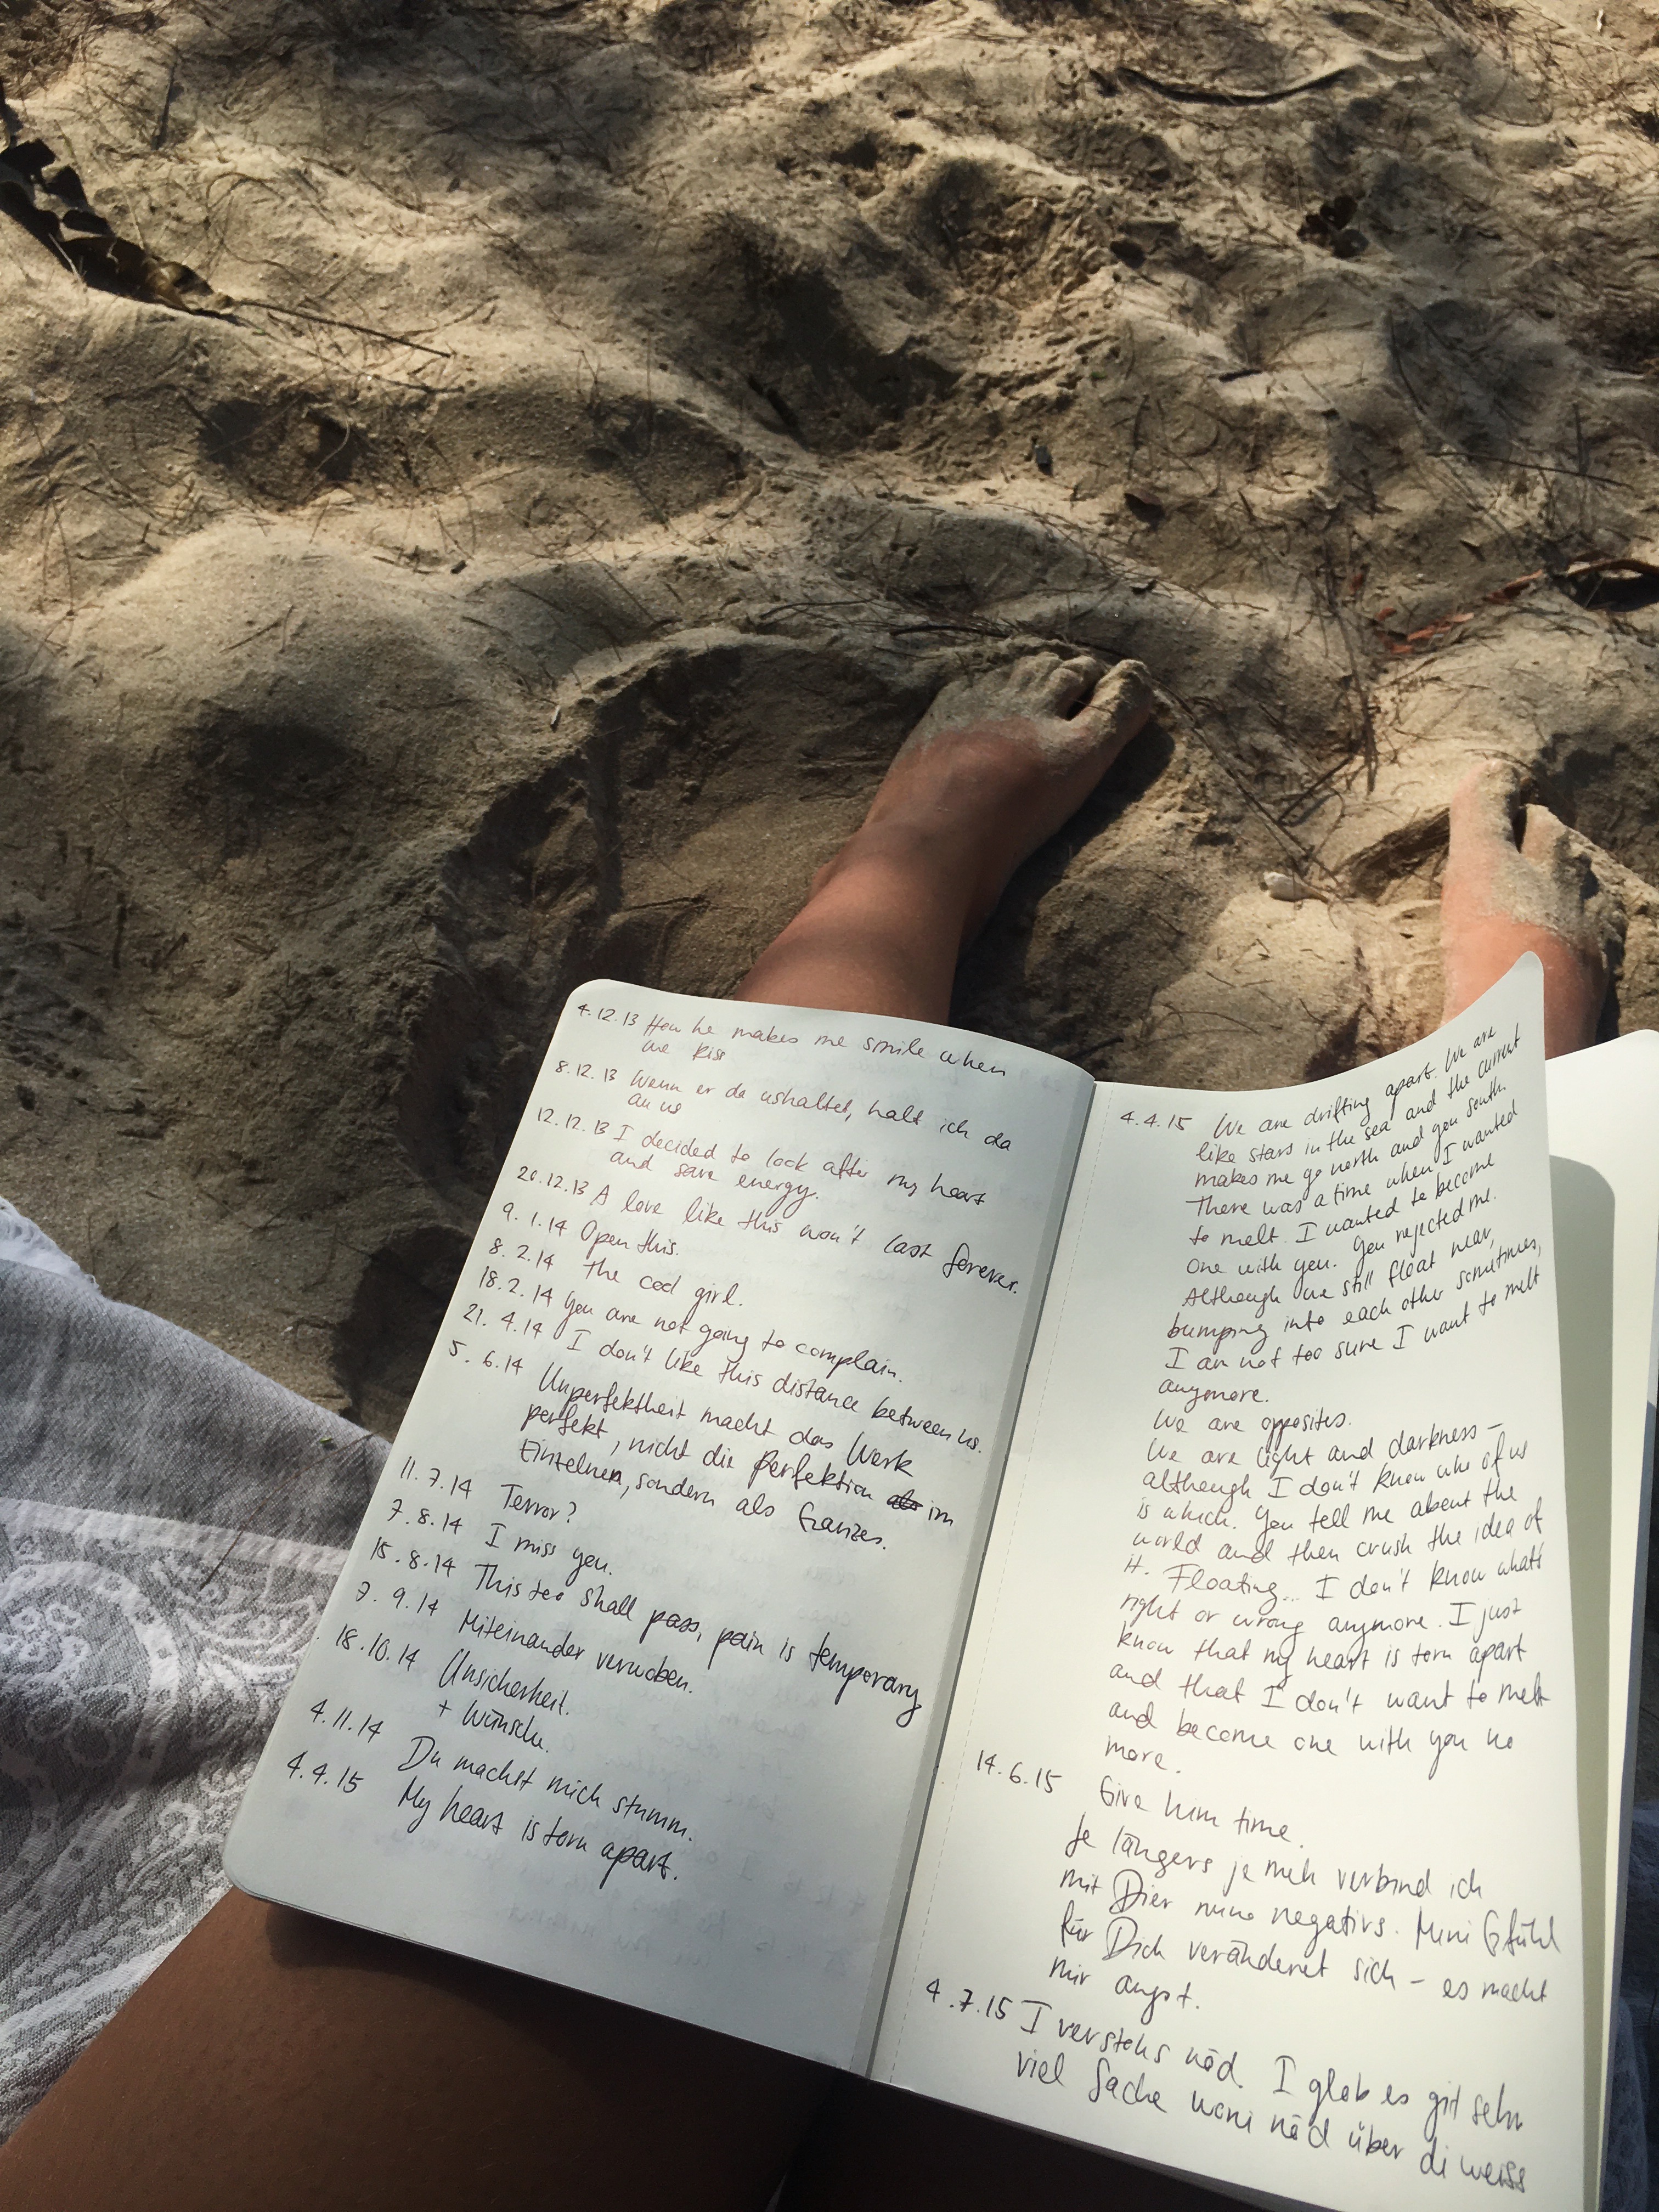 4.12.13 How he makes me smile when
we kiss
8.12.13 Wenn er da ushaltet, halt ich da
au us
12.12.13 I decided to look after my heart
and save energy.
20.12.13 A love like this won't last forever.
9.1.14 Open this.
8.2.14 The cool girl.
18.2.14 You are not going to complain.
21.4.14 I don't like this distance between us.
5.6.14 Unperfektheit macht das Werk
perfekt, nicht die Perfektion als im
Einzelnen, sondern als Ganzes.
11.7.14 Terror?
7.8.14 I miss you.
15.8.14 This too shall pass, pain is temporary
7.9.14 Miteinander verwoben.
18.10.14 Unsicherheit.
+ Wünsche.
4.11.14 Du machst mich stumm.
4.4.15 My heart is torn apart.
4.4.15 We are drifting apart. We are
like stars in the sea and the current
makes me go north and you south.
There was a time when I wanted
to melt. I wanted to become
one with you. You rejected me.
Although we still float near,
bumping into each other sometimes,
I am not too sure I want to melt
anymore.
We are opposites.
We are light and darkness –
although I don't know who of us
is which. You tell me about the
world and then crush the idea of
it. Floating... I don't know what's
right or wrong anymore. I just
know that my heart is torn apart
and that I don't want to melt
and become one with you no
more.
14.6.15 Give him time.
Je längers je meh verbind ich
mit Dier nume negativs. Mini Gfühl
für Dich veränderet sich – es macht
mir angst.
4.7.15 I verstehs nöd. I glob es git sehr
viel Sache woni nöd über di weiss